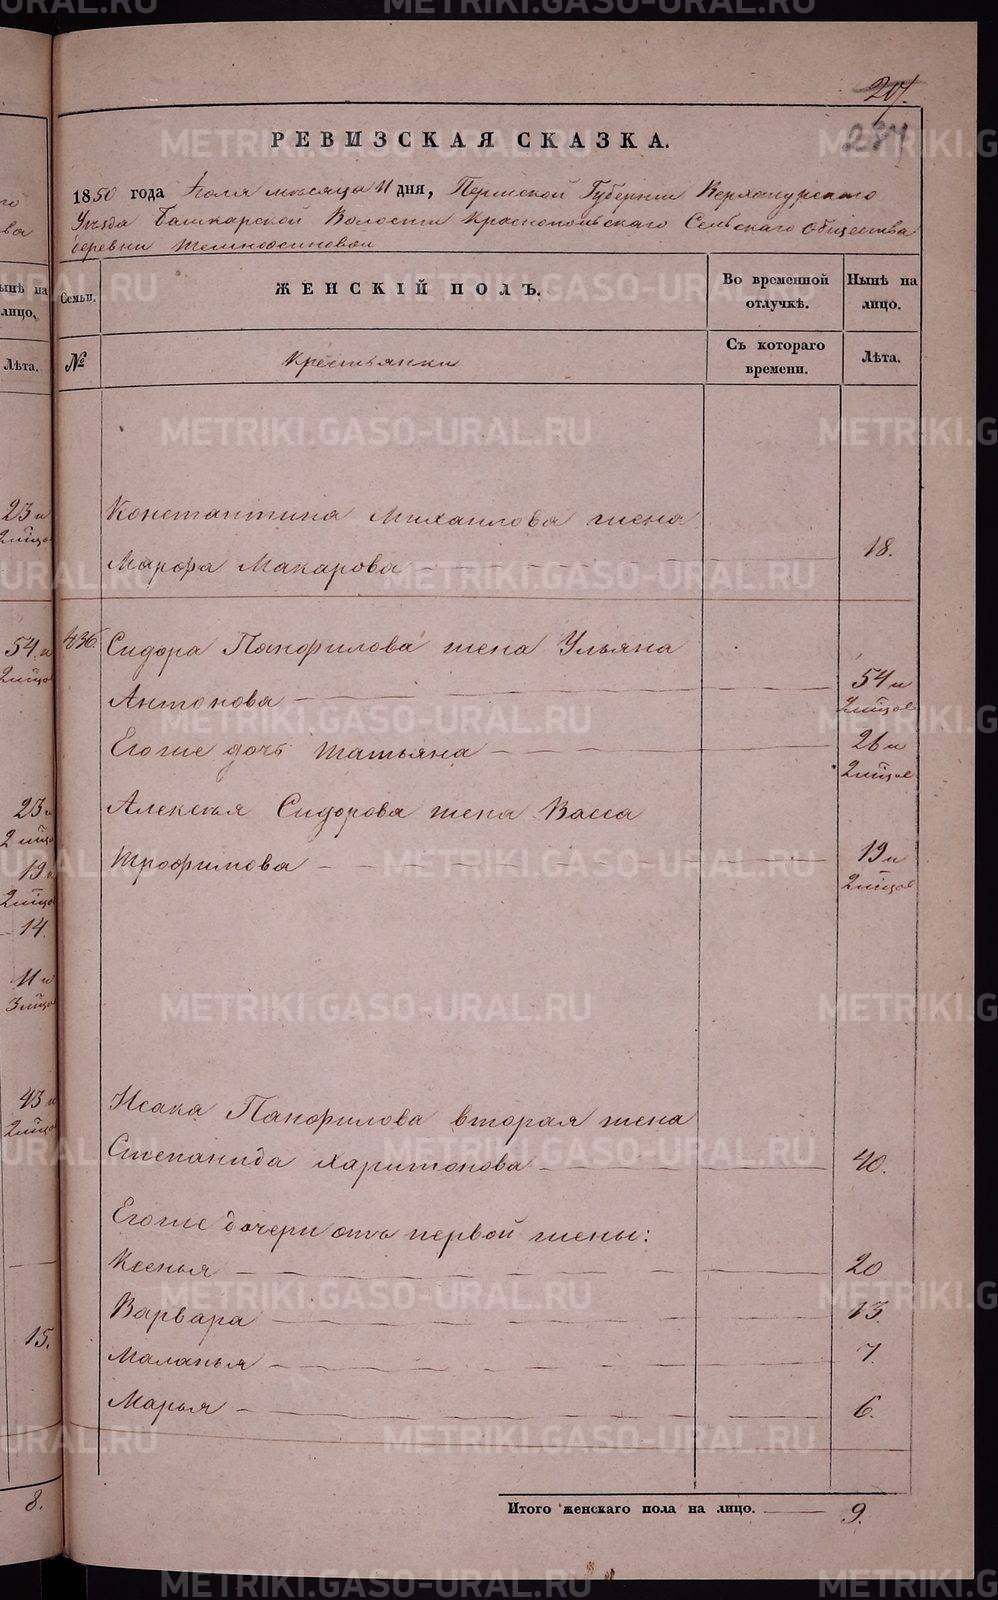 207.
284
РЕВИЗСКАЯ СКАЗКА.
1850 года Іюля мѣсяца 11 дня, Пермской Губерніи Верхотурскаго
Уѣзда Башкарской Волости Краснопольскаго Сельскаго Общества
деревни
Семьи.
ЖЕНСКІЙ ПОЛЪ.
Во временной отлучкѣ.
Нынѣ на лицо.
№
Крестьянки
Съ котораго времени.
Лѣта.
Константина Михаилова жена
Марфа Макарова 18.
436. Сидора Панфилова жена Ульяна
Антонова 54 и
2 мѣцов
Егоже дочь Татьяна 26 и
2 мѣцов
Алексѣя Сидорова жена Васса
Трофимова 19 и
2 мѣцов
Исака Панфилова вторая жена
Степанида Харитонова 40.
Егоже дочери отъ первой жены:
Ксенья 20
Варвара 13.
Маланья 7.
Марья 6.
Итого женскаго пола на лицо. 9.
ынѣ на
лицо.
Лѣта.
23 и
2 мѣцов
54 и
2 мѣцов
23 и
2 мѣцо
19 и
2 мѣцов
14.
11 и
3 мѣцов
43 и
2 мѣцов
15.
8.
METRIKI.GASO-URAL.RU